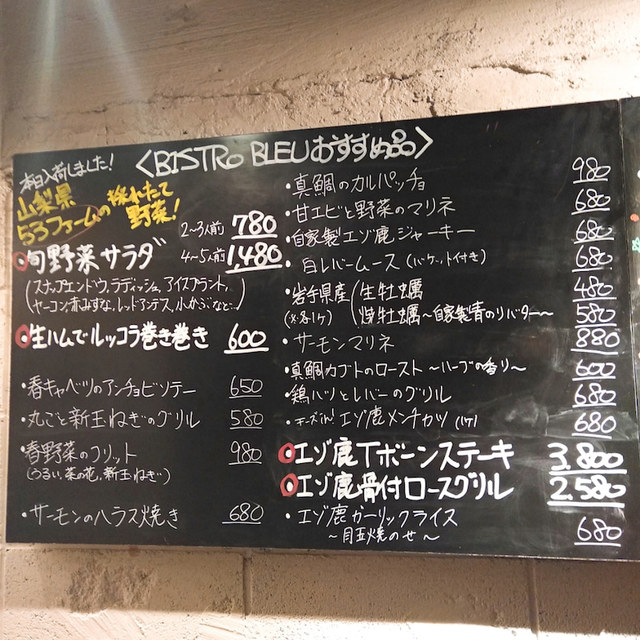 〈BISTRO BLEUおすすめ品〉
本日入荷しました!
山梨県
53ファームの採れたて
野菜!
旬野菜サラダ 2~3人前 780
4~5人前 1,480
(スナップエンドウ、ラディッシュ、アイスプラント、
ヤーコン、赤みずな、レッドアンテス、小かぶなど…)
生ハムでルッコラ巻き巻き 600
・春キャベツのアンチョビソテー 650
・丸ごと新玉ねぎのグリル 580
・春野菜のフリット 980
(うるい、菜の花、新玉ねぎ)
・サーモンのハラス焼き 680
・真鯛のカルパッチョ 980
・甘エビと野菜のマリネ 680
・自家製エゾ鹿ジャーキー 680
・白レバームース(バケット付き) 680
・岩手県産 生牡蠣 480
(※各1ケ) 焼牡蠣~自家製青のリバター~ 580
・サーモンマリネ 880
・真鯛カブトのロースト~ハーブの香り~ 600
・鶏ハツとレバーのグリル 680
・チーズin!エゾ鹿メンチカツ(1ケ) 680
エゾ鹿Tボーンステーキ 3.800
エゾ鹿骨付ロースグリル 2.580
・エゾ鹿ガーリックライス 680
~目玉焼のせ~